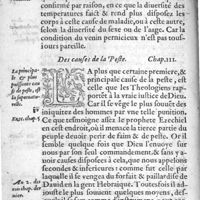 confirmé en raison, en ce que la diuersité des
temperatures faict & rend plus disposez les
corps à ceste cause de maladie, ou à ceste autre,
selon la diuersité du sexe ou de l'aage. Car la
condition du venin pernicieux n'est pas tous-
iours pareille.
Des causes de la Peste. Chap. III.
La principa-
le & plus
puissante cau
se de peste, est
la
LA plus que certaine premiere, &
principale cause de la peste, est
celle que les Theologiens rappor-
tent à la vraie iustice de Dieu.
Car il se vēge le plus souuēt des ini-
quitez des hommes par vne telle punition.
Ce que tesmoigne assez le prophete Ezechiel
Ezec. chap.
en cest endroit, où il menace la tierce partie du
peuple deuoir perir de faim & de peste. Or il
semble quelques fois que Dieu l'enuoye sur
les hommes, par son seul commandemēt, & sans
y auoir causes disposees à cela, que nous appellons
secondes & inferieures: comme est celle par
laquelle il se vengea du forfaict & paillardise
de Dauid en la gent Hebraique. Toutesfois il ad-
Au 2. des
uiēt le plus souuent quelques moyens, des-